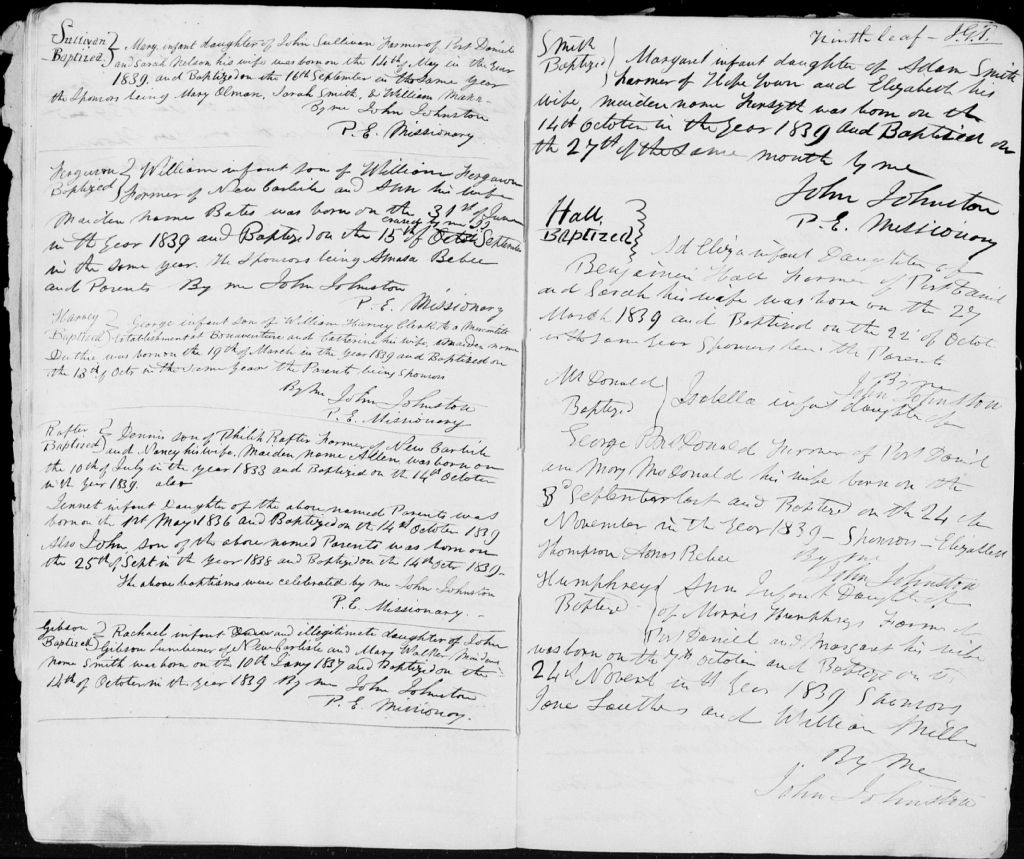 Sullivan Baptized } Mary infant daughter of John Sullivan Farmer of Port Daniel
and Sarah Nelson his wife was born on the 14th May in the Year
1839 and Baptized on the 16th September in the same Year
the Sponsors being Mary Olman, Sarah Smith, & William Mann
By me John Johnston
P. E. Missionary
Ferguson Baptized } William infant son of William Ferguson
Farmer of New Carlisle and Ann his wife
Maiden name Bates was born on the 31st of June
erased by me JJ
in the Year 1839 and Baptized on the 15th of Octob September
in the same year. The Sponsors being Amasa Bebee
and Parents By me John Johnston
P. E. Missionary
Harvey Baptized } George infant son of William Harvey Clerk to a Mercantile
Establishment at Bonaventure and Catherine his wife, maiden name
Duthie was born on the 19th of March in the Year 1839 and Baptized on
the 13th of Octr in the same Year the Parents being Sponsors
By Me John Johnston
P. E. Missionary
Rafter Baptized } Dennis son of Philip Rafter Farmer of New Carlisle
and Nancy his wife, Maiden name Allen was born on
the 10th of July in the year 1833 and Baptized on the 14th October
in the Year 1839. also
Jennet infant Daughter of the above named Parents was
born on the 1st May 1836 and Baptized on the 14th October 1839
Also John son of the above named Parents was born on
the 25th of Sept in the Year 1838 and Baptized on the 14th Octr 1839-
The above baptisms were celebrated by me John Johnston
P. E. Missionary.
Gibson Baptized } Rachael infant and illegitimate daughter of John
Gibson Lumberer of New Carlisle and Mary Walker Maiden
name Smith was born on the 10th Jany 1837 and Baptized on the
14th of October in the Year 1839 By me John Johnston
P. E. Missionary.
Ninth leaf - J.G.T.
Smith Baptized } Margaret infant daughter of Adam Smith
Farmer of Hope Town and Elizabeth his
wife, maiden name Forsyth was born on the
14th October in the Year 1839 and Baptized on
the 27th of the same month by me
John Johnston
P. E. Missionary
Hall Baptized } Ad Eliza infant Daughter of
Benjamin Hall Farmer of Port Daniel
and Sarah his wife was born on the 27
March 1839 and Baptized on the 22 of October
in the same Year Sponsors the Parents
By me
John Johnston
McDonald Baptized } Isabella infant daughter of
George McDonald Farmer of Port Daniel
and Mary McDonald his wife born on the
8th September last and Baptized on the 24th
November in the Year 1839 - Sponsors - Elizabeth
Thompson Amos Bebee
By Me
John Johnston
Humphreys Baptized } Ann Infant Daughter of
of Morris Humphrys Farmer of
Port Daniell and Margaret his wife
was born on the 7th October and Baptize on the
24th Novent in the Year 1839 Sponsors
Jane Southers and William Miller
By Me
John Johnston